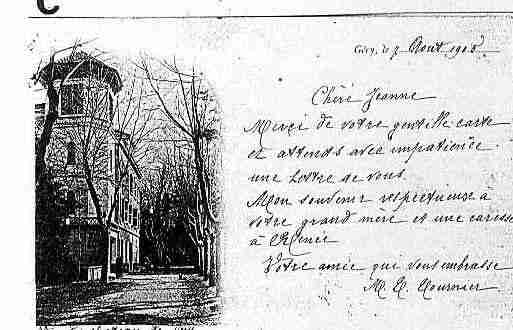 C
Géry, le 7 Août 1908
Chère Jeanne
Merci de votre gentille carte
et attends avec impatience
une lettre de vous.
Mon souvenir respectueuse à
votre grand mère et une caresse
à Renée
Votre amie qui vous embrasse
M. L. Mournier